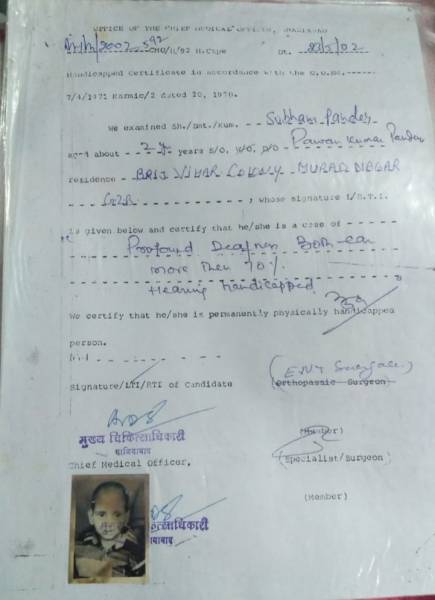 OFFICE OF THE CHIEF MEDICAL OFFICER,
2002-592 CMO/H/92 H.Cape Dt.
Handicapped Certificate in accordance with the G.O.No.------
7/4/1971 Karmic/2 dated 20, 1978.
We examined Sh./Smt./Kum. Subham Pandey
aged about -- 2 y years S/O, W/O, D/O Pawan Kumar Pandey
residence BRIJ VIHAR COLONY MURAD NAGAR
GZB ; whose signature L/R.T.I.
is given below and certify that he/she is a case of
Profound Deafness Both ear
more then 70%
Hearing handicapped
We certify that he/she is permanently physically handicapped
person.
Signature/LTI/RTI of Candidate
(ENT Surgeon)
(Orthopaedic Surgeon)
(Member)
मुख्य चिकित्साधिकारी
गाजियाबाद
Chief Medical Officer,
(Specialist/Surgeon)
(Member)